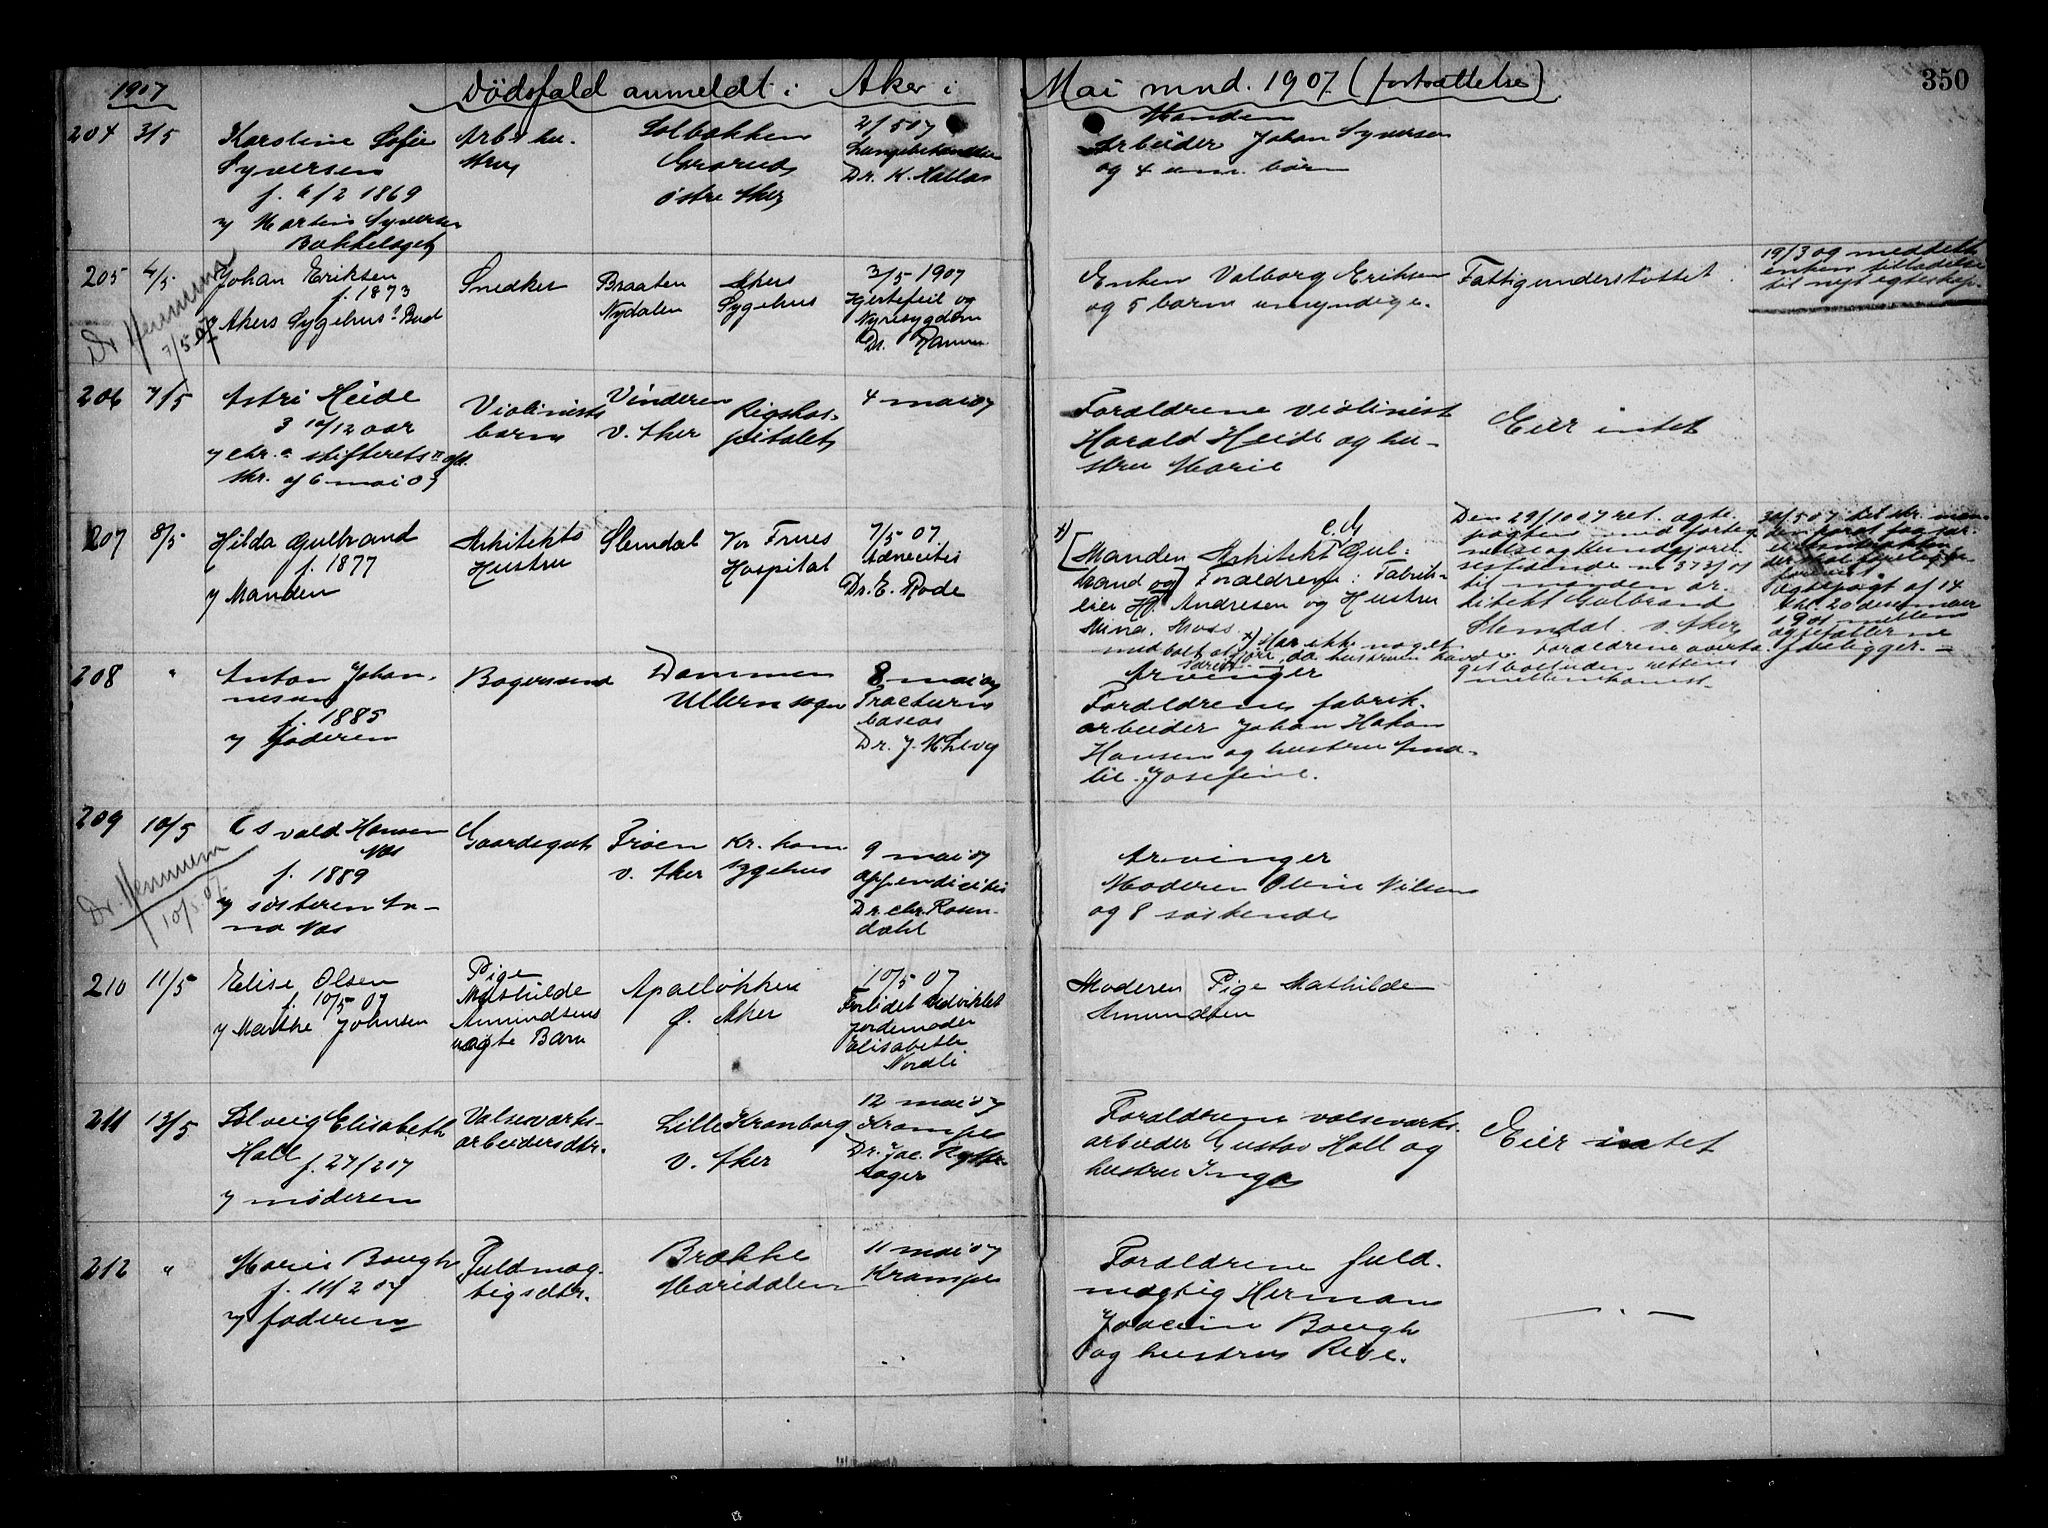 1907 Dödsfald anmeldt i Aker i Mai mnd. 1907 (fortsættelse) 350
204 3/5 Karoline Sofie
Syversen
f. 6/2 1869
v/ Martin Syversen
Bækkelaget
Arb. hu-
stru
Solbakken
Grorud
østre Aker
2/5 07
Dr. K. Motzfeldt
Manden
Arbeider Johan Syversen
og 4 um. børn
205 4/5 Johan Eriksen
f. 1873
v/ Akers Sygehus' Bud
Dr Hemmum
7/5 07
Snedker
Braaten
Nydalen
Akers
Sygehus
3/5 1907
Hjertefeil og
Nyresygdom
Dr. Hanum
Enken Valborg Eriksen
og 5 barn umyndige.
Fattigunderstøttet
19/3 09 meddelt
enken tilladelse
til nyt egteskap.
206 7/5 Astri Heide
3 10/12 aar
v/ chr.a skifterets
skr. af 6 mai 07
Violinists
barn
Vinderen
V. Aker
Rigshos-
pitalet
4 mai 07
Forældrene violinist
Harald Heide og hu-
stru Marie
Eier intet
207 8/5 Hilda Gulbrand
f. 1877
v/ Manden
Arkitekts
Hustru
Slemdal
Vor Frues
Hospital
7/5 07.
Dr. E. Rode
x) [Manden Arkitekt C. G. Gul-
brand og] Forældrene: Fabrik-
eier H. Andresen og Hustru
Mina. Moss. x) Har ikke noget
med boet at gjøre, da hustruen havde
særeie.
Den 29/10 07 ret. ægte-
pagten med forteg-
nelse og kundgjørel-
til manden ar-
kitekt Gulbrand
Slemdal v. Aker
Forældrene overta-
get boet uden rettens
mellemkomst.
Ægtepagt af 14
20 desember
1901 mellem
ægtefællerne
foreligger.
208 " Anton Johan-
nesen
f. 1885
v/ faderen
Bagersvend
Dammen
Ullern sogn
8 mai 07
Fractura
baseos
Arvinger
Forældrene fabrik-
arbeider Johan Hakon
Hansen og hustru Ama-
lie Josefine.
209 10/5 Osvald Hansen
Næs
f. 1889
v/ søsteren An-
na Næs
Dr. Hemmum
10/5 07
Gaardsgut
Frøen
V. Aker
Kr. kom.
sygehus
9 mai 07
appendicitis
Dr. chr. Rosen-
dahl
Arvinger
Moderen Oline Nilsen
og 8 søskende
210 11/5 Elise Olsen
f. 10/5 07
v/ Marthe Johnsen
Pige
Mathilde
Amundsens
uægte Barn
Apalløkken
Ø. Aker
10/5 07
Forlidet udviklet
jordemoder
Elisabeth
Nordli
Moderen Pige Mathilde
Amundsen
211 13/5 Solveig Elisabeth
Holl
f. 27/2 07
v/ moderen
Valseværks-
arbeidersdtr.
Lille Kronborg
V. Aker
12 mai 07
Krampe
Forældrene valseværks-
arbeider Gustav Holl og
hustru Inga
Eier intet
212 " Marie Baugh
f. 11/2 07
v/ faderen
Fuldmæg-
tigsdtr.
Brække
Maridalen
11 mai 07
Krampe
Forældrene fuld-
mægtig Herman
Joacim Baugh
og hustru
— . —